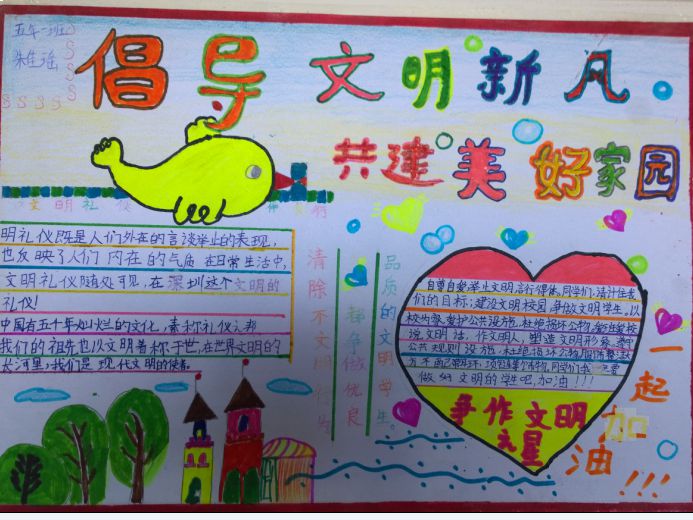 五年一班
倡导文明新风
共建美好家园
文明礼仪
明礼仪既是人们外在的言谈举止的表现,
也反映了人们内在的气质在日常生活中,
文明礼仪随处可见,在深圳这个文明的
礼仪!
中国有五千年灿烂的文化,素称礼仪之邦
我们的祖先也以文明著称于世,在世界文明的
长河里,我们是现代文明的使者。
清除不文明行为
争做优良
品质的文明学生。
自尊自爱,举止文明,言行得体。同学们,请计住我
们的目标:建设文明校园,争做文明学生。以
校为家,爱护公共设施,杜绝损坏公物,
说文明话,作文明人,塑造文明形象,遵守
做好文明的学生吧,加油!!!
争作文明
之星
一起加油!!!